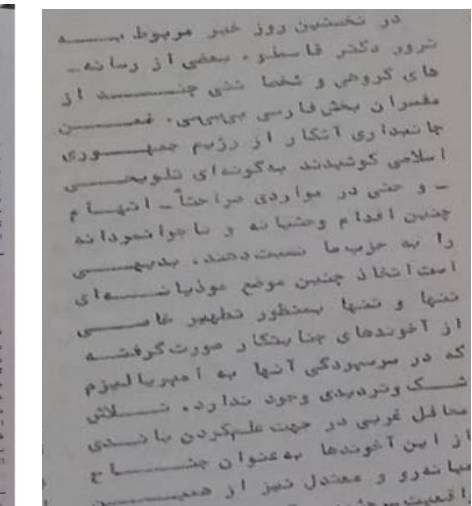 در نخستین روز خبر مربوط بـــه
ترور دکتر قاسملو، بعضی از رسانه‌ـ
های گروهی و شخصا تنی چنـــد از
مفسران بخش فارسی بی‌بی‌سی، ضمـــن
جانبداری آشکار از رژیم جمهـــوری
اسلامی کوشیدند به‌گونه‌ای تلویحـــی
ـ و حتی در مواردی صراحتاً ـ اتهـــام
چنین اقدام وحشیانه و ناجوانمردانه
را به حزب ما نسبت دهند. بدیهـــی
است اتخاذ چنین موضع موذیانـــه‌ای
تنها و تنها بمنظور تطهیر خاصـــی
از آخوندهای جنایتکار صورت گرفتـــه
که در سرسپردگی آنها به امپریالیزم
شـــک و تردیدی وجود ندارد. تـــلاش
محافل غربی در جهت علم‌کردن بانـــدی
از این آخوندها به‌عنوان جنـــاح
میانه‌رو و معتدل نیز از همیـــن
واقعیت